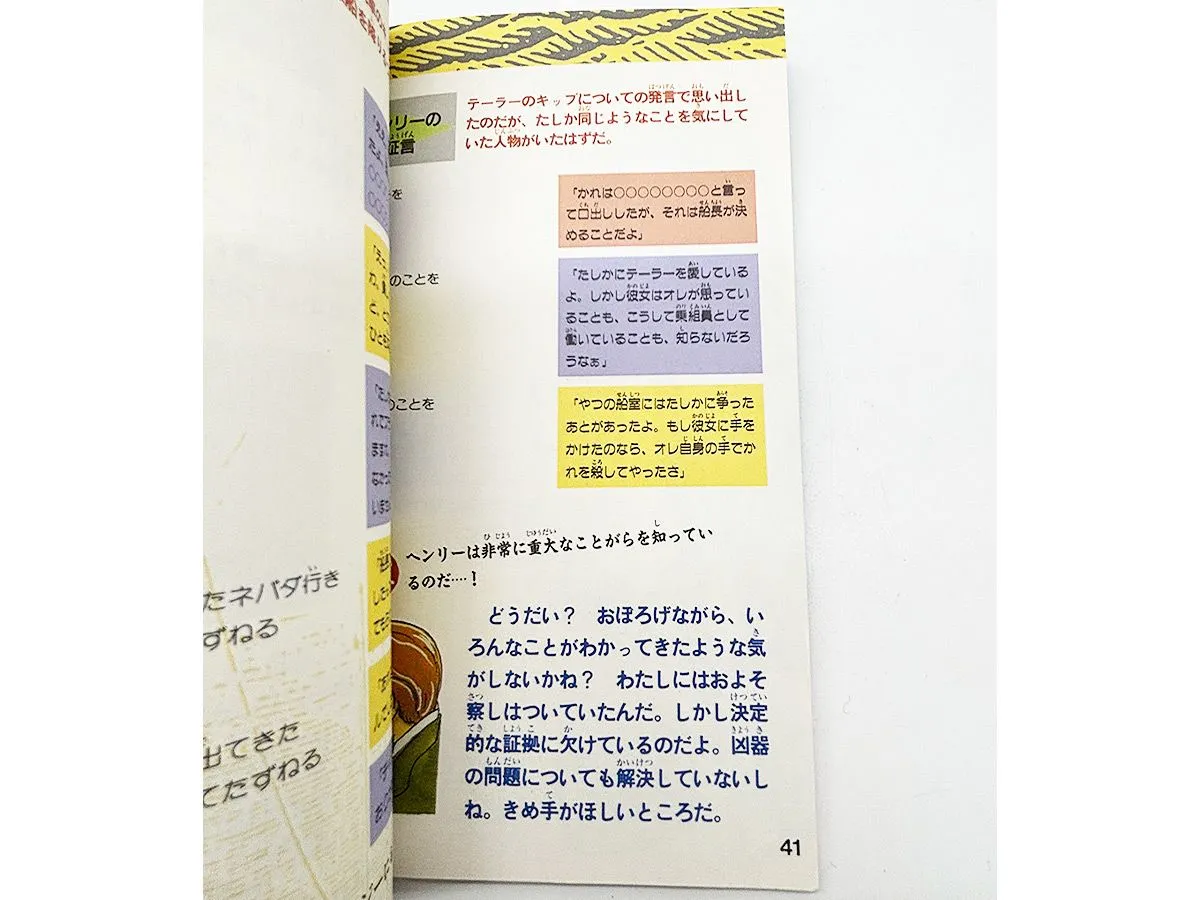 たネバダ行き
ずねる
出てきた
てたずねる
リーの
証言
テーラーのキップについての発言で思い出し
たのだが、たしか同じようなことを気にして
いた人物がいたはずだ。
を
「かれは○○○○○○○○と言っ
て口出ししたが、それは船長が決
めることだよ」
のことを
「たしかにテーラーを愛している
よ。しかし彼女はオレが思ってい
ることも、こうして乗組員として
働いていることも、知らないだろ
うなぁ」
のことを
「やつの船室にはたしかに争った
あとがあったよ。もし彼女に手を
かけたのなら、オレ自身の手でか
れを殺してやったさ」
ヘンリーは非常に重大なことがらを知ってい
るのだ‥‥！
どうだい？　おぼろげながら、い
ろんなことがわかってきたような気
がしないかね？　わたしにはおよそ
察しはついていたんだ。しかし決定
的な証拠に欠けているのだよ。凶器
の問題についても解決していないし
ね。きめ手がほしいところだ。
41